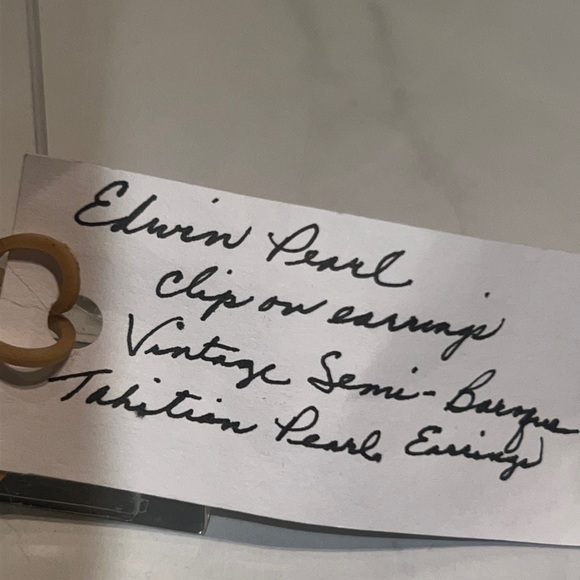 Edwin Pearl
Clip on earrings
Vintage Semi-Baroque
Tahitian Pearl Earrings